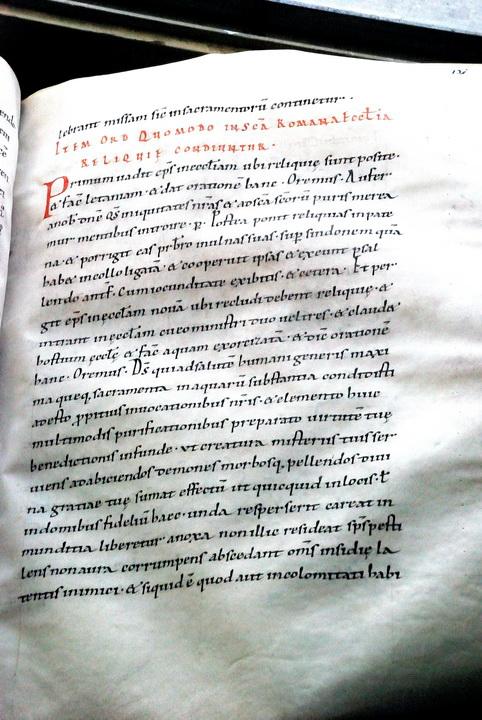 lebrant missam sic̄ insacramentorū continetur.
ITEM ORD QUOMODO INSCĀ ROMANA ECCŁIA
RELIQUIĘ CONDUNTUR.
Primum uadit ep̄s ineccłiam ubireliquię sunt posite.
& fac̄ letaniam. & dat orationē hanc. Oremus. Aufer
anob. dnē. Q̄s iniquitates nr̄as & adsca scorū puris merea
mur mentibus introire. p. Postea ponit reliquias inpate
na. & porrigit eas prb̄ro inulnas suas. sup sindonem quā
habe& incollo ligatā. & cooperiut ipsas & exeunt psal
lendo ant̄. Cumiocunditate exibitis. & cetera. Et per
git ep̄s inęcclam nouā ubi recludi debent reliquię. &
intrant inęcclam cueo ministri duo uel tres. & claude
hostium ęcclę & fac̄ aquam exorcizatā. & dic̄ orationē
hanc. Oremus. D̄s quiadsalutē humani generis maxi
ma queq, sacramenta inaquarū substantia condidisti
adesto ppitius inuocationibus nr̄is. & elemento huic
multimodis purificationibus preparato uirtutē tuę
benedictionis infunde. ut creatura misteriis tuis ser
uiens adabiciendos demones morbosq, pellendos diui
na gratiae tuę sumat effectū ut quicquid inlocis. ł
indomibus fidelium haec. unda resperserit careat in
munditia liberetur anoxa nonillic resideat sps̄ pesti
lens nonaura corrumpens abscedant om̄s insidię la
tentis inimici. & siquid ē quod aut incolomitati habi